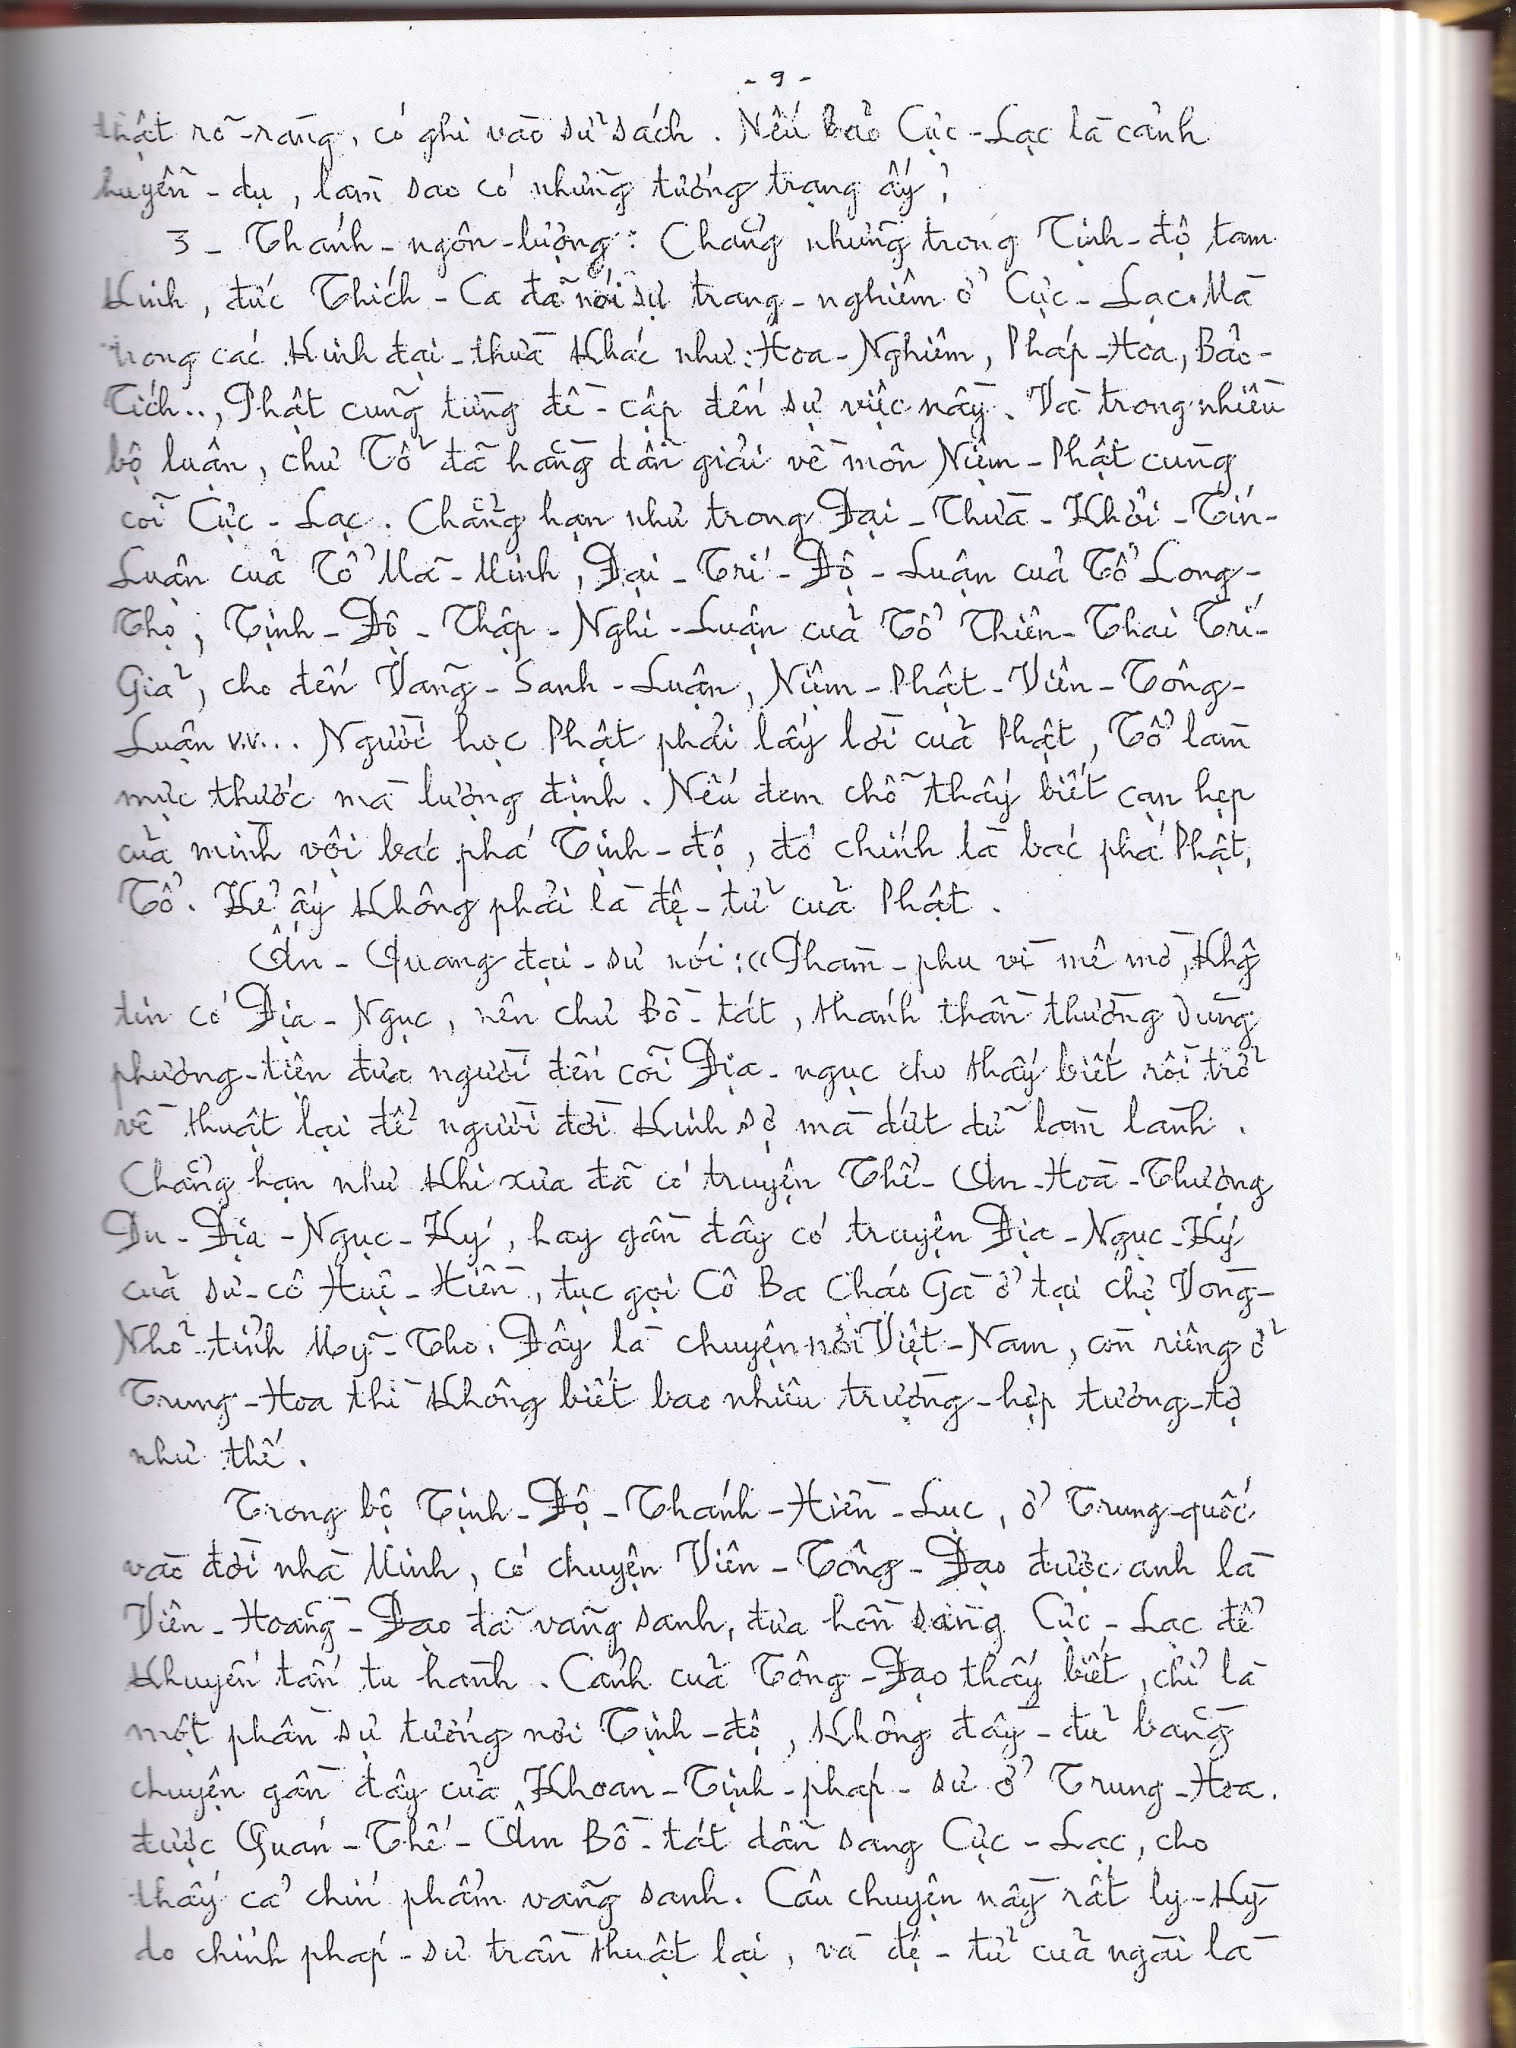 - 9 -
thật rõ-ràng, có ghi vào sử sách. Nếu bảo Cực-Lạc là cảnh
huyền-dụ, làm sao có những tướng trạng ấy?
3 - Thánh-ngôn-lượng: Chẳng những trong Tịnh-độ tam
Kinh, đức Thích-Ca đã nói sự trang-nghiêm ở Cực-Lạc. Mà
trong các Kinh đại-thừa khác như: Hoa-Nghiêm, Pháp-Hoa, Bảo-
Tích.., Phật cũng từng đề-cập đến sự việc nầy. Và trong nhiều
bộ luận, chư Tổ đã hằng dẫn giải về môn Niệm-Phật cùng
cõi Cực-Lạc. Chẳng hạn như trong Đại-Thừa-Khởi-Tín-
Luận của Tổ Mã-Minh, Đại-Trí-Độ-Luận của Tổ Long-
Thọ, Tịnh-Độ-Thập-Nghi-Luận của Tổ Thiên-Thai Trí-
Giả, cho đến Vãng-Sanh-Luận, Niệm-Phật-Viên-Tông-
Luận v.v... Người học Phật phải lấy lời của Phật, Tổ làm
mực thước mà lượng định. Nếu đem chỗ thấy biết cạn hẹp
của mình vội bác phá Tịnh-độ, đó chính là bác phá Phật,
Tổ. Kẻ ấy không phải là đệ-tử của Phật.
Ấn-Quang đại-sư nói: «Phàm-phu vì mê mờ, khg
tin có Địa-Ngục, nên chư Bồ-tát, thánh thần thường dùng
phương-tiện đưa người đến cõi Địa-ngục cho thấy biết rồi trở
về thuật lại để người đời kinh sợ mà dứt dữ làm lành.
Chẳng hạn như khi xưa đã có truyện Thể-An-Hoà-Thượng
Du-Địa-Ngục-Ký, hay gần đây có truyện Địa-Ngục-Ký
của sư-cô Huệ-Hiền, tục gọi Cô Ba Cháo Gà ở tại chợ Vòng-
Nhỏ tỉnh Mỹ-Tho. Đây là chuyện nơi Việt-Nam, còn riêng ở
Trung-Hoa thì không biết bao nhiêu trường-hợp tương-tợ
như thế.
Trong bộ Tịnh-Độ-Thánh-Hiền-Lục, ở Trung-quốc
vào đời nhà Minh, có chuyện Viên-Tông-Đạo được anh là
Viên-Hoằng-Đạo đã vãng sanh, đưa hồn sang Cực-Lạc để
khuyến tấn tu hành. Cảnh của Tông-Đạo thấy biết, chỉ là
một phần sự tướng nơi Tịnh-độ, không đầy-đủ bằng
chuyện gần đây của Khoan-Tịnh-pháp-sư ở Trung-Hoa.
được Quán-Thế-Âm Bồ-tát dẫn sang Cực-Lạc, cho
thấy cả chín phẩm vãng sanh. Câu chuyện nầy rất ly-kỳ
do chính pháp-sư trần thuật lại, và đệ-tử của ngài là